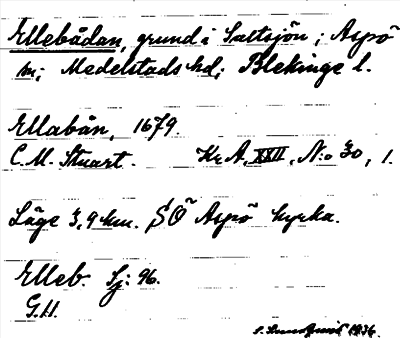 Ellebådan, grund i Saltsjön; Aspö
sn; Medelstads hd; Blekinge l.
Ellabån, 1679.
C.M. Stuart. Kr A, XXII, N:o 30, 1.
Läge 3,9 km. SÖ Aspö kyrka.
Elleb. Sj: 96.
G.H.
1936.